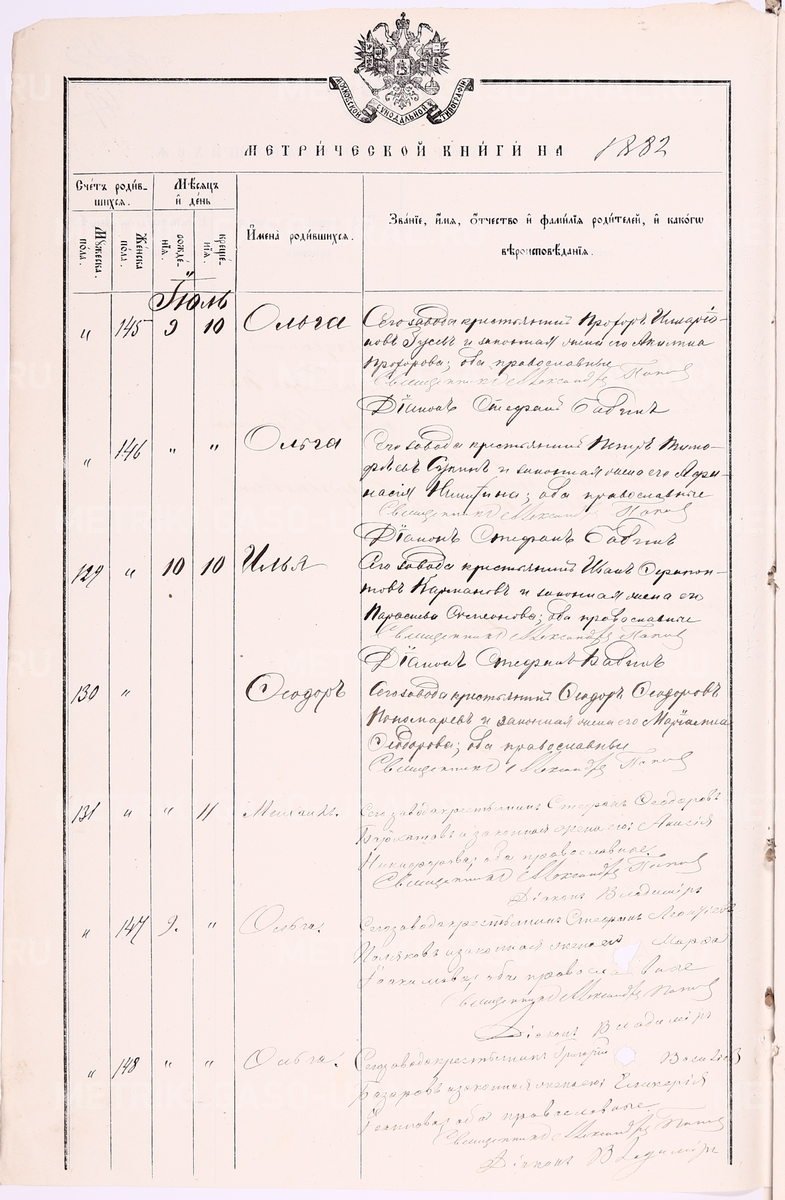 МОСКОВСКОЙ СѴНОДАЛЬНОЙ ТИПОГРАФІИ
МЕТРИ́ЧЕСКОЙ КНИ́ГИ НА 1882
Сче́тъ роди́в-
шихся.
Мѣ́сяцъ
и҆ де́нь
Мꙋ́жеска
по́ла.
Же́нска
по́ла.
рожде́-
нїѧ.
креще́-
нїѧ.
И҆мена̀ роди́вшихся.
Зва́нїе, и҆́мѧ, ѻ҆́тчество и҆ фами́лїѧ роди́телей, и҆ како́гѡ
вѣроисповѣ́данїѧ.
Іюль
" 145 9 10 Ольга Сего завода крестьянинъ Прохоръ Иларіо-
новъ Гусевъ и законная жена его Акилина
Прохорова; оба православные
Священникъ Александръ Попов
Діаконъ Стефанъ Бабинъ
" 146 " " Ольга Сего завода крестьянинъ Петръ Тимо-
фѣевъ и законная жена его Афа-
насія Никитина; оба православные
Священникъ Александръ Попов
Діаконъ Стефанъ Бабинъ
129 " 10 10 Илья Сего завода крестьянинъ Иванъ Ферапон-
товъ Кармановъ и законная жена его
Параскева Симеонова; оба православные
Священникъ Александръ Попов
Діаконъ Стефанъ Бабинъ
130 " Ѳеодоръ Сего завода крестьянинъ Ѳеодоръ Ѳеодоровъ
Пономаревъ и законная жена его Маріамна
Ѳеодорова; оба православные
Священникъ Александръ Попов
131 " " 11 Сего завода крестьянинъ Стефанъ Ѳеодоровъ
и законная жена его
Никифорова; оба православные.
Священникъ Александръ Попов
Діаконъ Владиміръ
" 147 9. " Ольга. Сего завода крестьянинъ Стефанъ
Поляковъ и законная жена его Марѳа
оба православные
Священникъ Александръ Попов
Діаконъ Владиміръ
" 148 " " Ольга. Сего завода крестьянинъ Григорій
Базаровъ и законная жена его Гликерія
оба православные
Священникъ Александръ Попов
Діаконъ Владиміръ